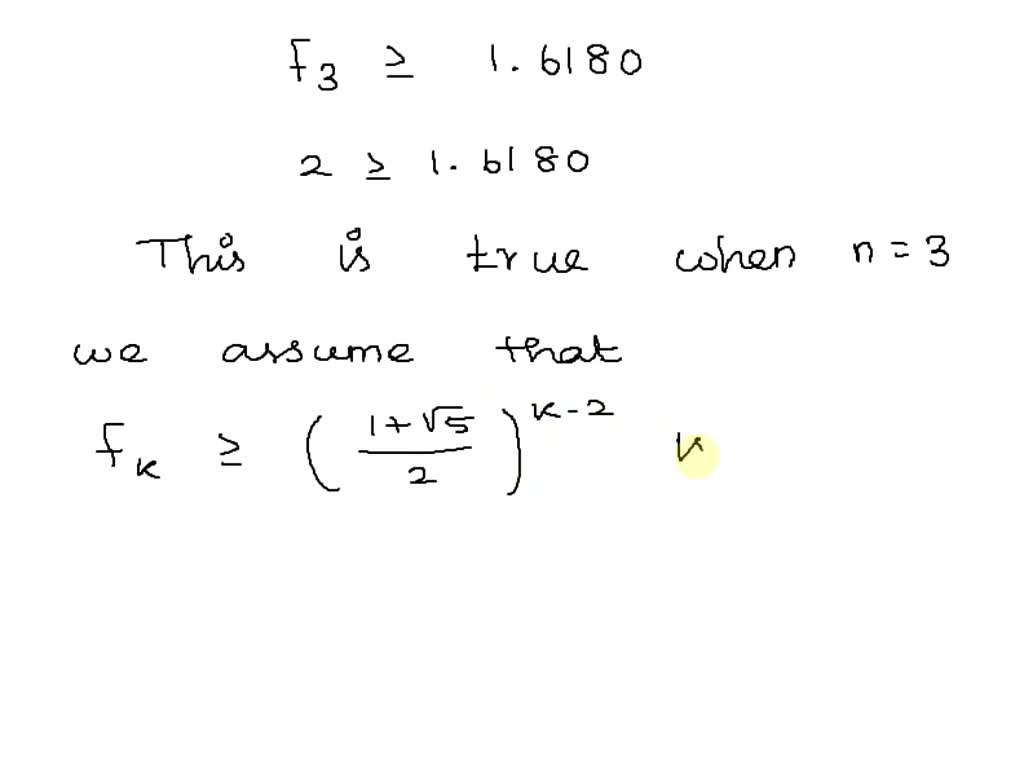 f₃ ≥ 1.6180
2 ≥ 1.6180
This is true when n = 3
we assume that
fₖ ≥ ((1+√5)/2)^(k-2) k